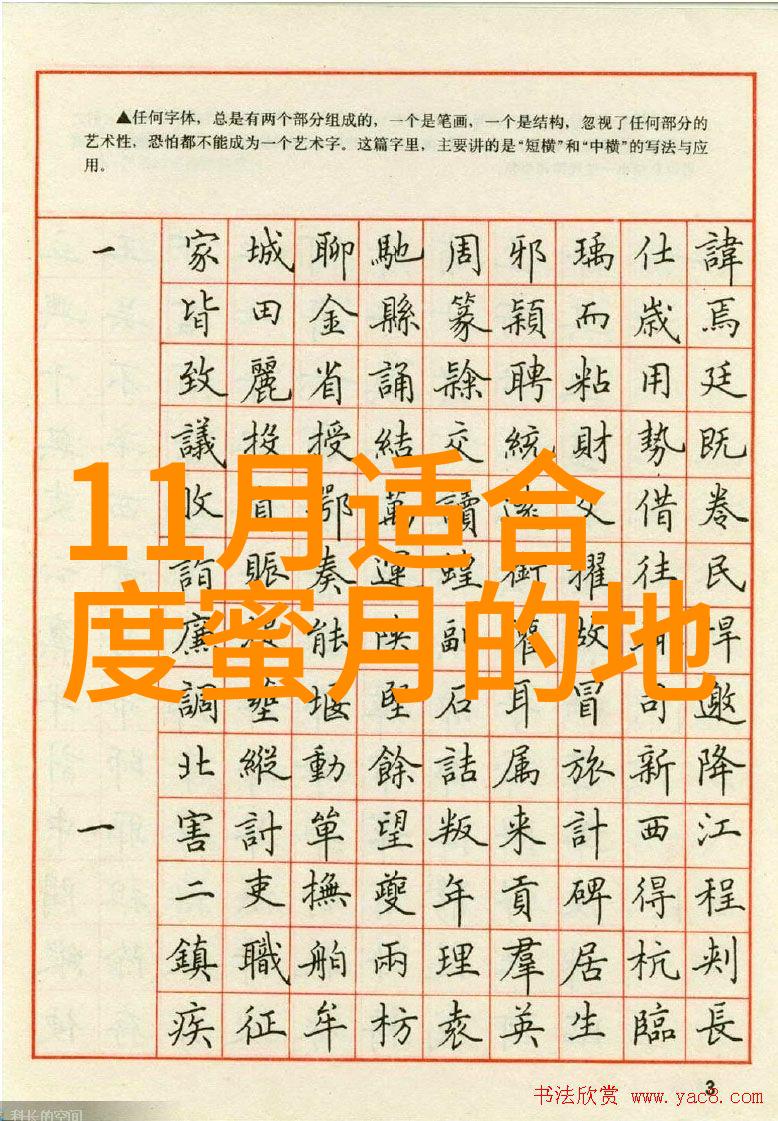 ▲任何字体，总是有两个部分组成的，一个是笔画，一个是结构，忽视了任何部分的
艺术性，恐怕都不能成为一个艺术字。这篇字里，主要讲的是“短横”和“中横”的写法与应
用。
一 家城聊馳周邪瑀仕諱
皆田金縣篆穎而歲焉
致麗省誦隸聘粘用廷
議投授結交統財勢既
收鄂萬讀借卷
詣賑奏運蝗衝擢往民
廉能陝副瞿故悍
調堰堅石耳冒司邀
北縱動餘詰属旅新降
一 害討單望叛来計西江
二吏撫夔年貢碑得程
鎮職舶兩理羣居杭刺
疾征牟枋袁英生臨長
11月适合
度蜜月的地
3
书法欣赏 www.yac8.com
科长的空间